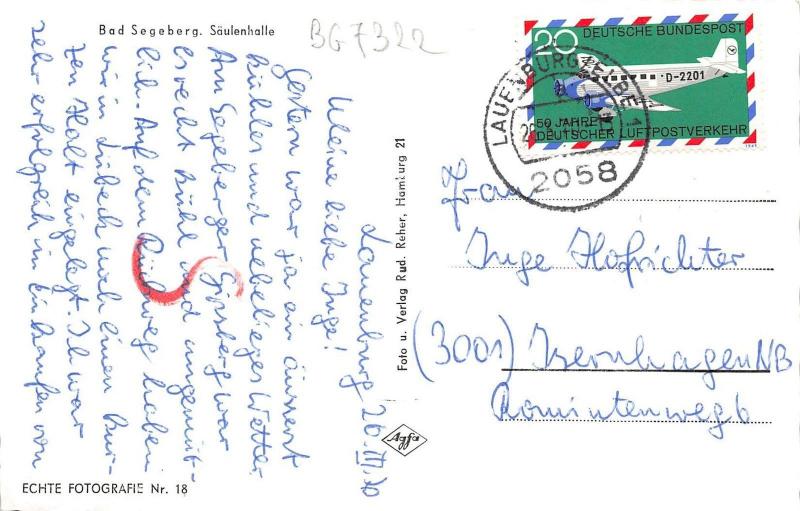 Bad Segeberg. Säulenhalle
BG7322
Lauenburg 26.III.70
Meine liebe Inge!
Gestern war ja ein äusserst
kühles und nebeliges Wetter
Am Segeberger
es recht kühl und ungemüt-
lich. Auf dem Rückweg haben
wir in Lübeck noch einen kur-
zen Halt eingelegt. Ich war
sehr erfolgreich im Einkaufen von
ECHTE FOTOGRAFIE Nr. 18
Foto u. Verlag Rud. Reher, Hamburg 21
Agfa
20
DEUTSCHE BUNDESPOST
D-2201
50 JAHRE
DEUTSCHER LUFTPOSTVERKEHR
LAUENBURG/ELBE 1
2058
Frau
Inge Hofrichter
(3001) Isernhagen NB
Romintenweg 6